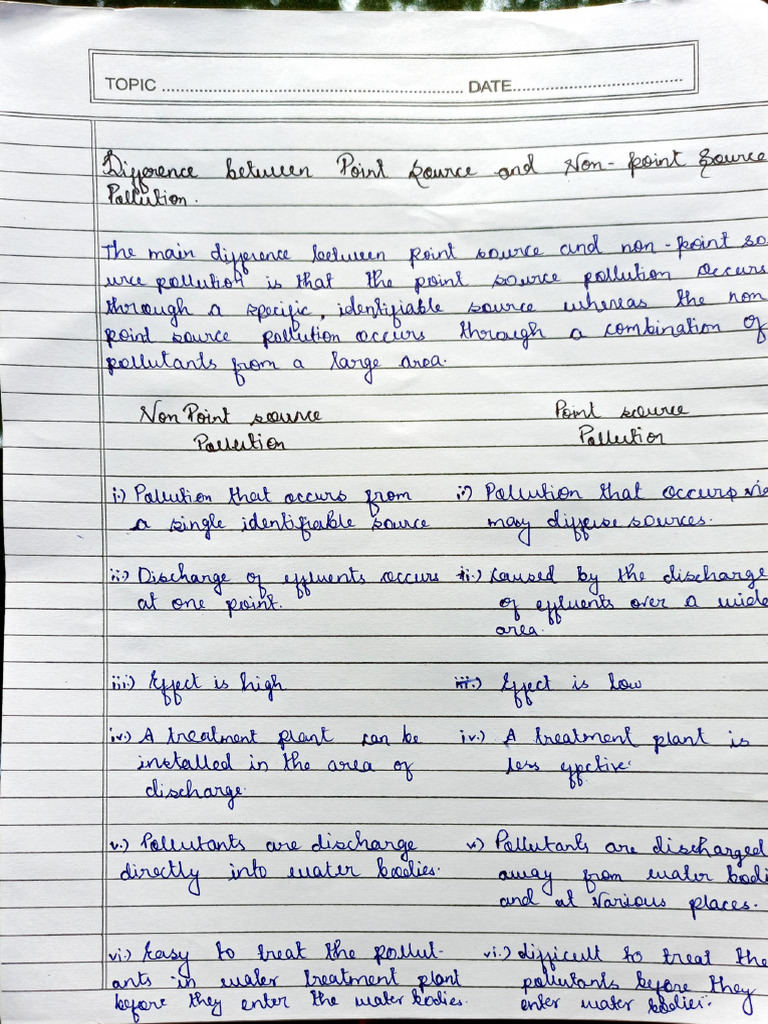 TOPIC ........................ DATE........................
Difference between Point Source and Non-point Source
Pollution.
The main difference between point source and non-point so
urce pollution is that the point source pollution occurs
through a specific, identifiable source whereas the non
point source pollution occurs through a combination of
pollutants from a large area.
Non Point source Point source
Pollution Pollution
i.) Pollution that occurs from i.) Pollution that occurs via
a single identifiable source many diffuse sources.
ii.) Discharge of effluents occurs ii.) Caused by the discharge
at one point. of effluents over a wide
area.
iii.) Effect is high iii.) Effect is low
iv.) A treatment plant can be iv.) A treatment plant is
installed in the area of less effctive.
discharge.
v.) Pollutants are discharge v.) Pollutants are discharged
directly into water bodies. away from water bodi
and at various places.
vi.) Easy to treat the pollut- vi.) difficult to treat the
ants in water treatment plant pollutants before they
before they enter the water bodies. enter water bodies.